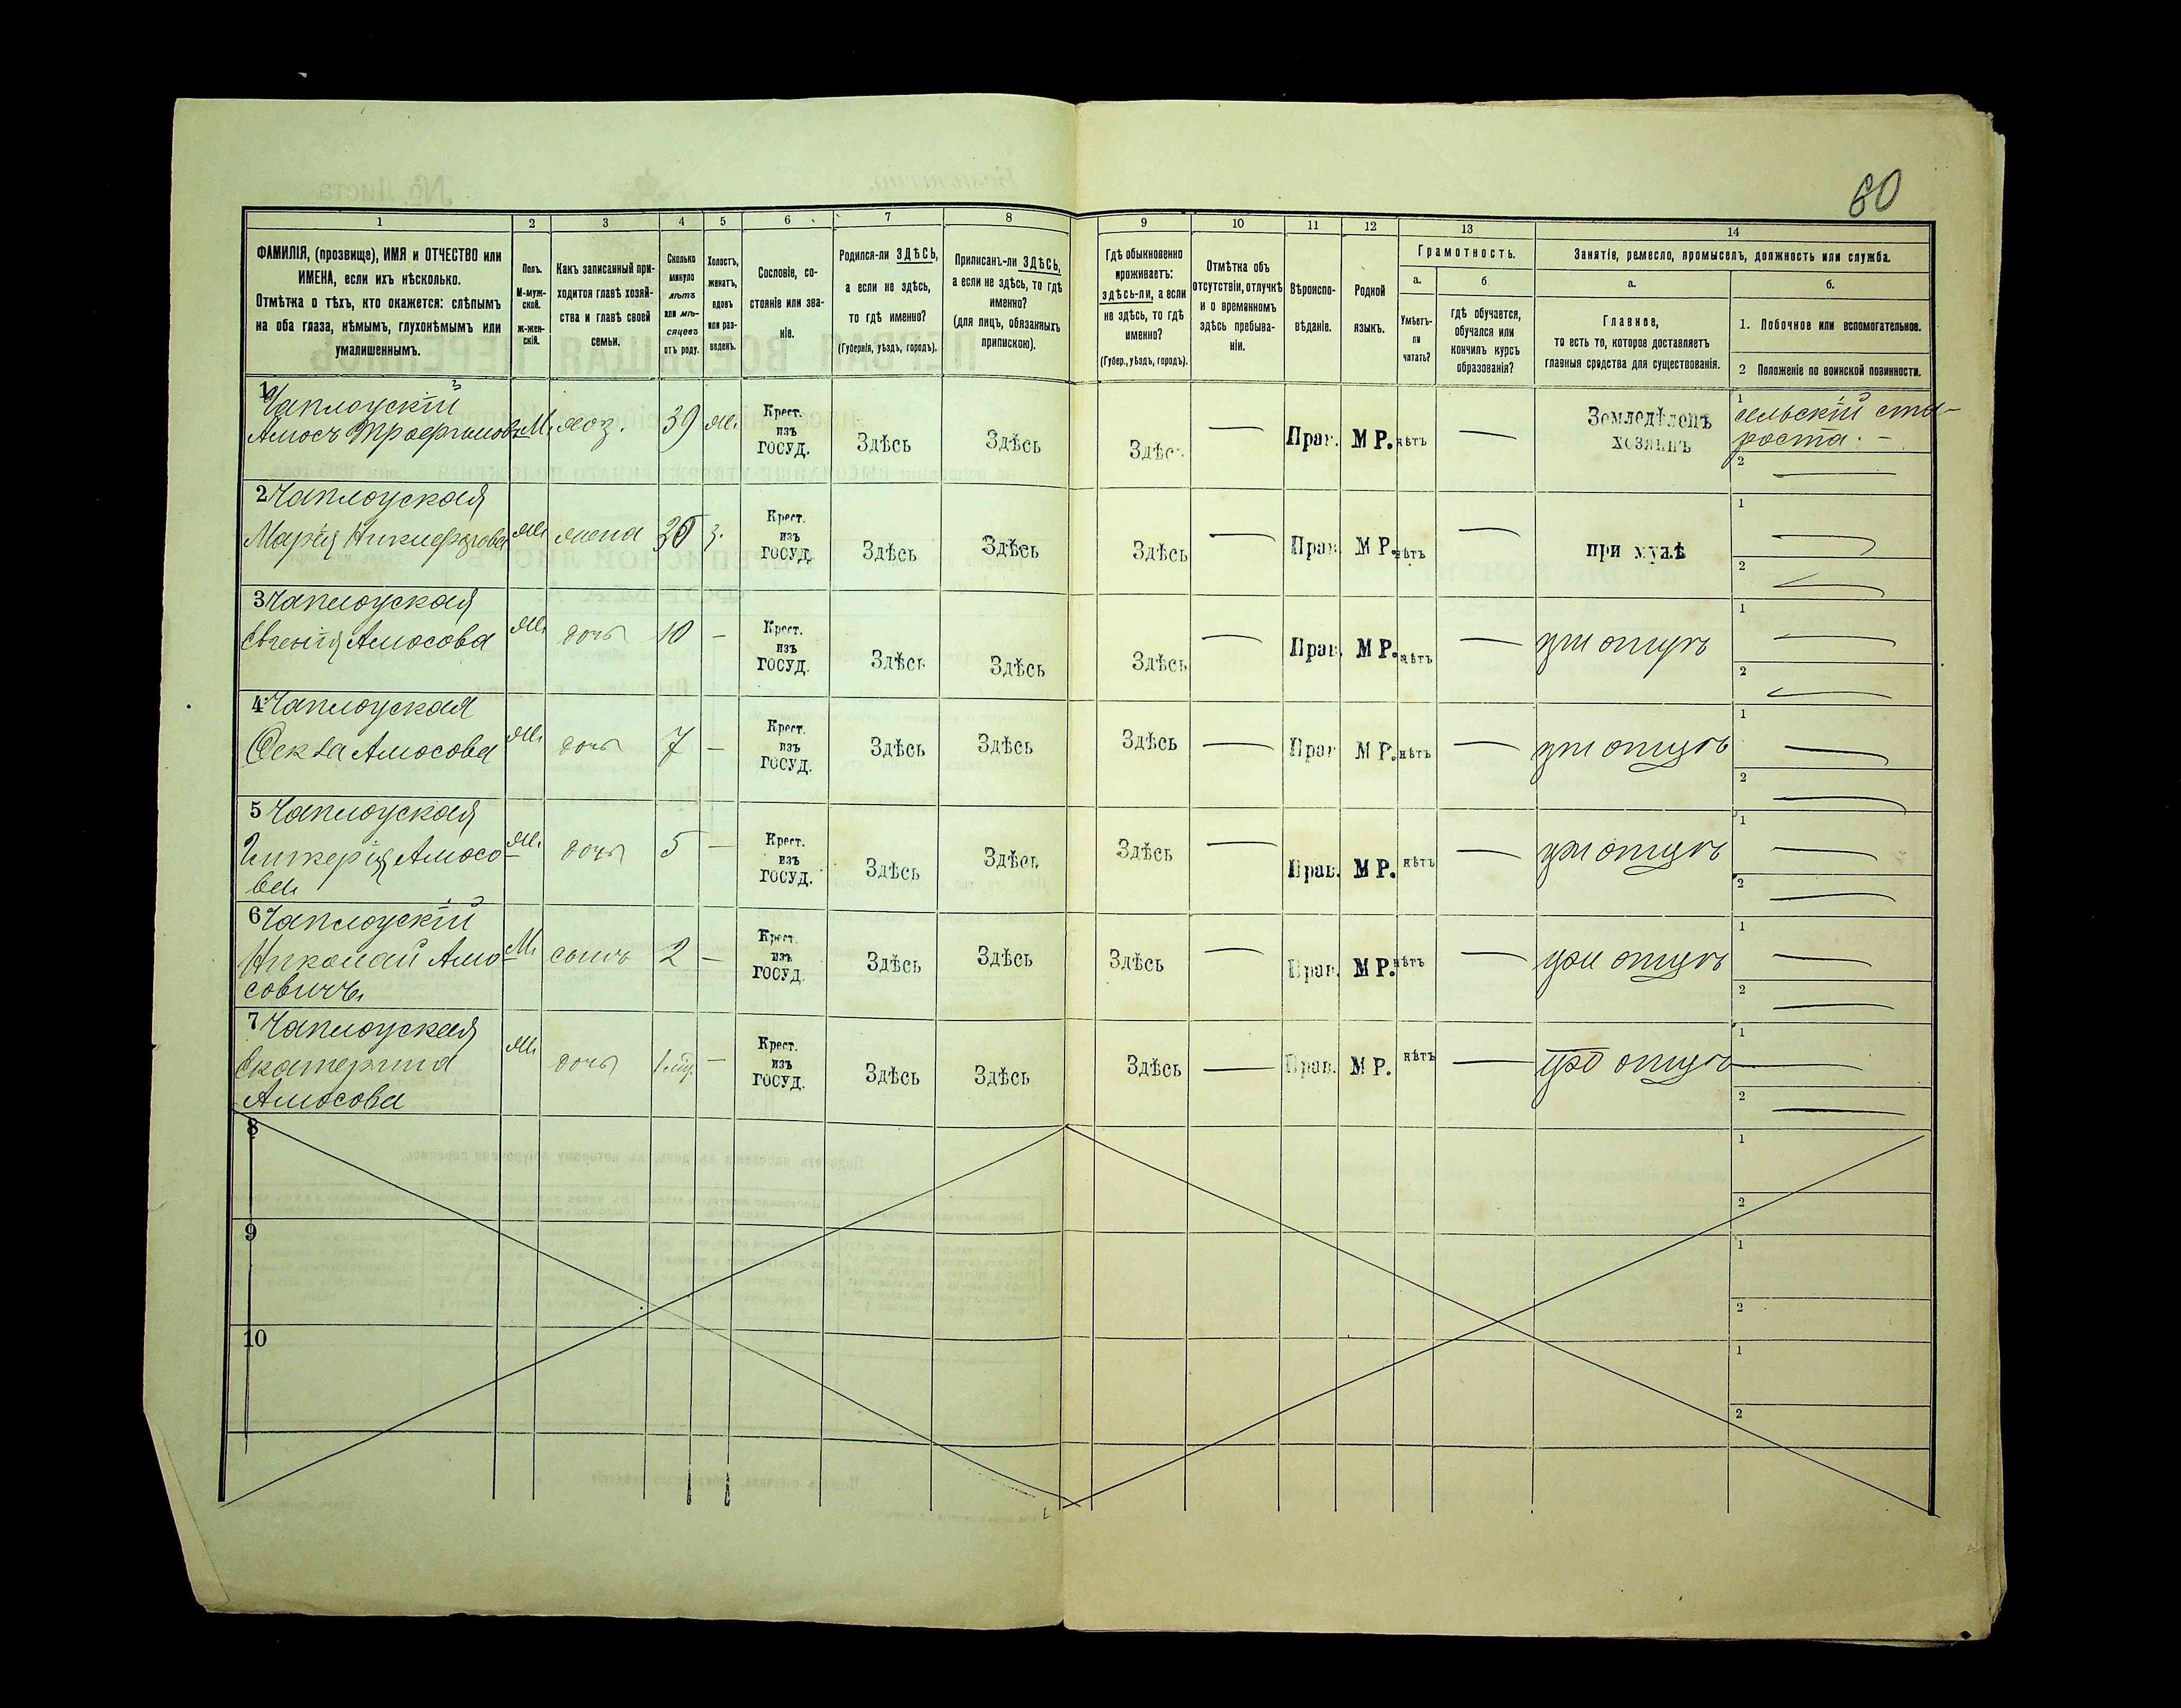 60
1 2 3 4 5 6 7 8 9 10 11 12 13 14
ФАМИЛІЯ, (прозвище), ИМЯ и ОТЧЕСТВО или
ИМЕНА, если ихъ нѣсколько.
Отмѣтка о тѣхъ, кто окажется: слѣпымъ
на оба глаза, нѣмымъ, глухонѣмымъ или
умалишеннымъ.
Полъ.
М-муж-
ской.
ж-жен-
скій.
Какъ записанный при-
ходится главѣ хозяй-
ства и главѣ своей
семьи.
Сколько
минуло
лѣтъ
или мѣ-
сяцевъ
отъ роду.
Холостъ,
женатъ,
вдовъ
или раз-
веденъ.
Сословіе, со-
стояніе или зва-
ніе.
Родился-ли ЗДѢСЬ,
а если не здѣсь,
то гдѣ именно?
(Губернія, уѣздъ, городъ).
Приписанъ-ли ЗДѢСЬ,
а если не здѣсь, то гдѣ
именно?
(для лицъ, обязанныхъ
припискою).
Гдѣ обыкновенно
проживаетъ:
здѣсь-ли, а если
не здѣсь, то гдѣ
именно?
(Губер., уѣздъ, городъ).
Отмѣтка объ
отсутствіи, отлучкѣ
и о временномъ
здѣсь пребыва-
ніи.
Вѣроиспо-
вѣданіе.
Родной
языкъ.
Грамотность.
а.
Умѣетъ-
ли
читать?
б.
гдѣ обучается,
обучался или
кончилъ курсъ
образованія?
Занятіе, ремесло, промыселъ, должность или служба.
а.
Главное,
то есть то, которое доставляетъ
главныя средства для существованія.
б.
1. Побочное или вспомогательное.
2 Положеніе по воинской повинности.
1 Чаплоускій
Амосъ Трофимовъ М. хоз. 39 ж. Крест. изъ ГОСУД. Здѣсь Здѣсь Здѣсь — Прав. МР. нѣтъ — Земледѣлецъ хозяинъ 1 сельскій ста-
роста. —
2
2 Чаплоуская
Марія Никифорова ж. жена З. Крест. изъ ГОСУД. Здѣсь Здѣсь Здѣсь — Прав. МР. нѣтъ — при мужѣ 1
2
3 Чаплоуская
Евгенія Амосова ж. дочь 10 — Крест. изъ ГОСУД. Здѣсь Здѣсь Здѣсь — Прав. МР. нѣтъ — при отцѣ 1
2
4 Чаплоуская
Ѳекла Амосова ж. дочь 7 — Крест. изъ ГОСУД. Здѣсь Здѣсь Здѣсь — Прав. МР. нѣтъ — при отцѣ 1
2
5 Чаплоуская
Амосо-
ва ж. дочь 5 — Крест. изъ ГОСУД. Здѣсь Здѣсь Здѣсь — Прав. МР. нѣтъ — при отцѣ 1
2
6 Чаплоускій
Николай Амо-
совичъ М. сынъ 2 — Крест. изъ ГОСУД. Здѣсь Здѣсь Здѣсь — Прав. МР. нѣтъ — при отцѣ 1
2
7 Чаплоуская
Екатерина
Амосова ж. дочь — Крест. изъ ГОСУД. Здѣсь Здѣсь Здѣсь — Прав. МР. нѣтъ — при отцѣ 1
2
8 1
2
9 1
2
10 1
2